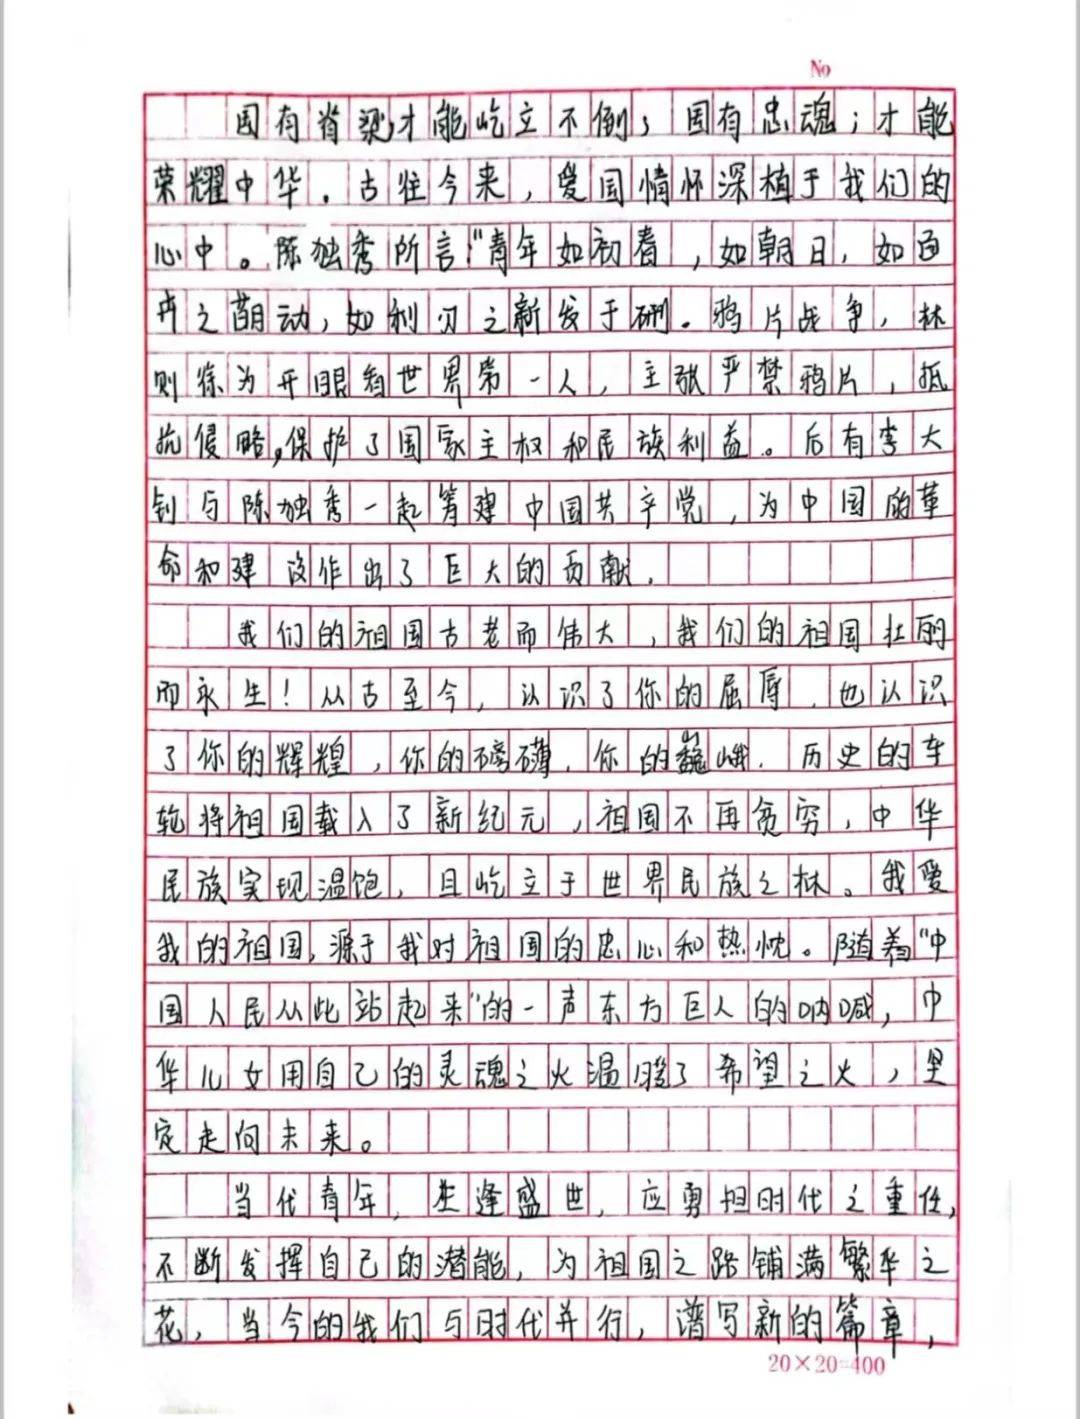 No
国有脊梁才能屹立不倒；国有忠魂；才能
荣耀中华。古往今来，爱国情怀深植于我们的
心中。陈独秀所言："青年如初春，如朝日，如百
卉之萌动，如利刃之新发于硎。鸦片战争，林
则徐为开眼看世界第一人，主张严禁鸦片，抵
抗侵略，保护了国家主权和民族利益。后有李大
钊与陈独秀一起筹建中国共产党，为中国的革
命和建设作出了巨大的贡献。
我们的祖国古老而伟大，我们的祖国壮丽
而永生！从古至今，认识了你的屈辱，也认识
了你的辉煌，你的磅礴，你的巍峨。历史的车
轮将祖国载入了新纪元，祖国不再贫穷，中华
民族实现温饱，且屹立于世界民族之林。我爱
我的祖国，源于我对祖国的忠心和热忱。随着"中
国人民从此站起来"的一声东方巨人的呐喊，中
华儿女用自己的灵魂之火温暖了希望之火，坚
定走向未来。
当代青年，生逢盛世，应勇担时代之重任，
不断发挥自己的潜能，为祖国之路铺满繁华之
花，当今的我们与时代并行，谱写新的篇章，
20×20=400